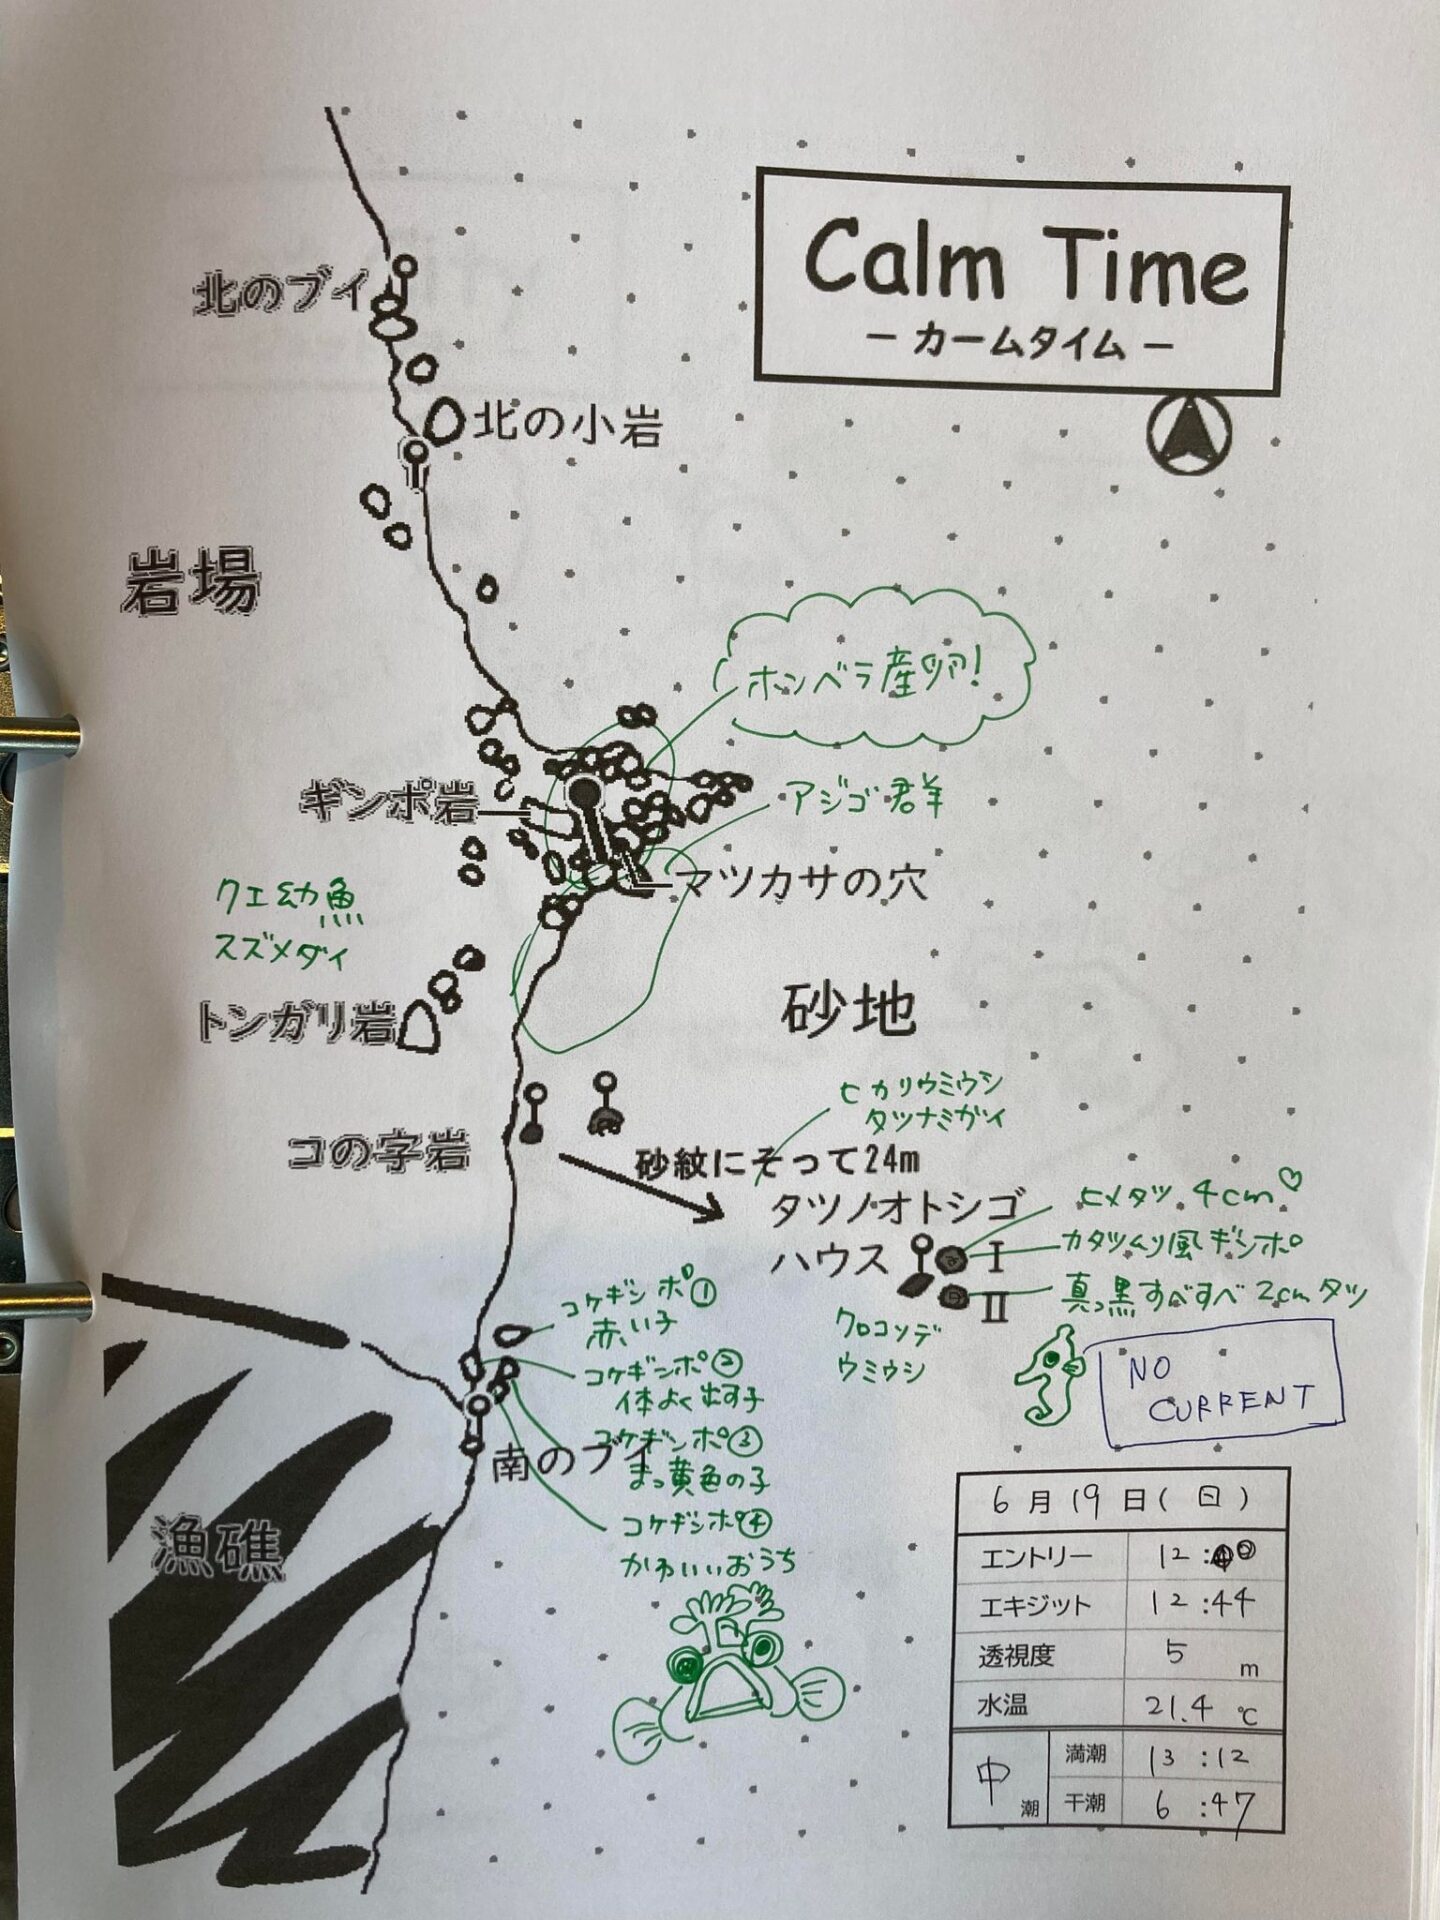 Calm Time
－ カームタイム －
北のブイ
北の小岩
岩場
ホンベラ産卵!
ギンポ岩
アジゴ群
マツカサの穴
クエ幼魚
スズメダイ
トンガリ岩
砂地
ヒカリウミウシ
タツナミガイ
コの字岩
砂紋にそって24m
タツノオトシゴ
ハウス
I
II
ヒメタツ 4cm♡
カタツムリ風ギンポ
真っ黒すべすべ 2cmタツ
クロコソデ
ウミウシ
NO
CURRENT
コケギンポ①
赤い子
コケギンポ②
体よく出す子
コケギンポ③
まっ黄色の子
コケギンポ④
かわいいおうち
南のブイ
漁礁
6月19日(日)
エントリー 12:00
エキジット 12:44
透視度 5 m
水温 21.4 ℃
中潮
満潮 13:12
干潮 6:47